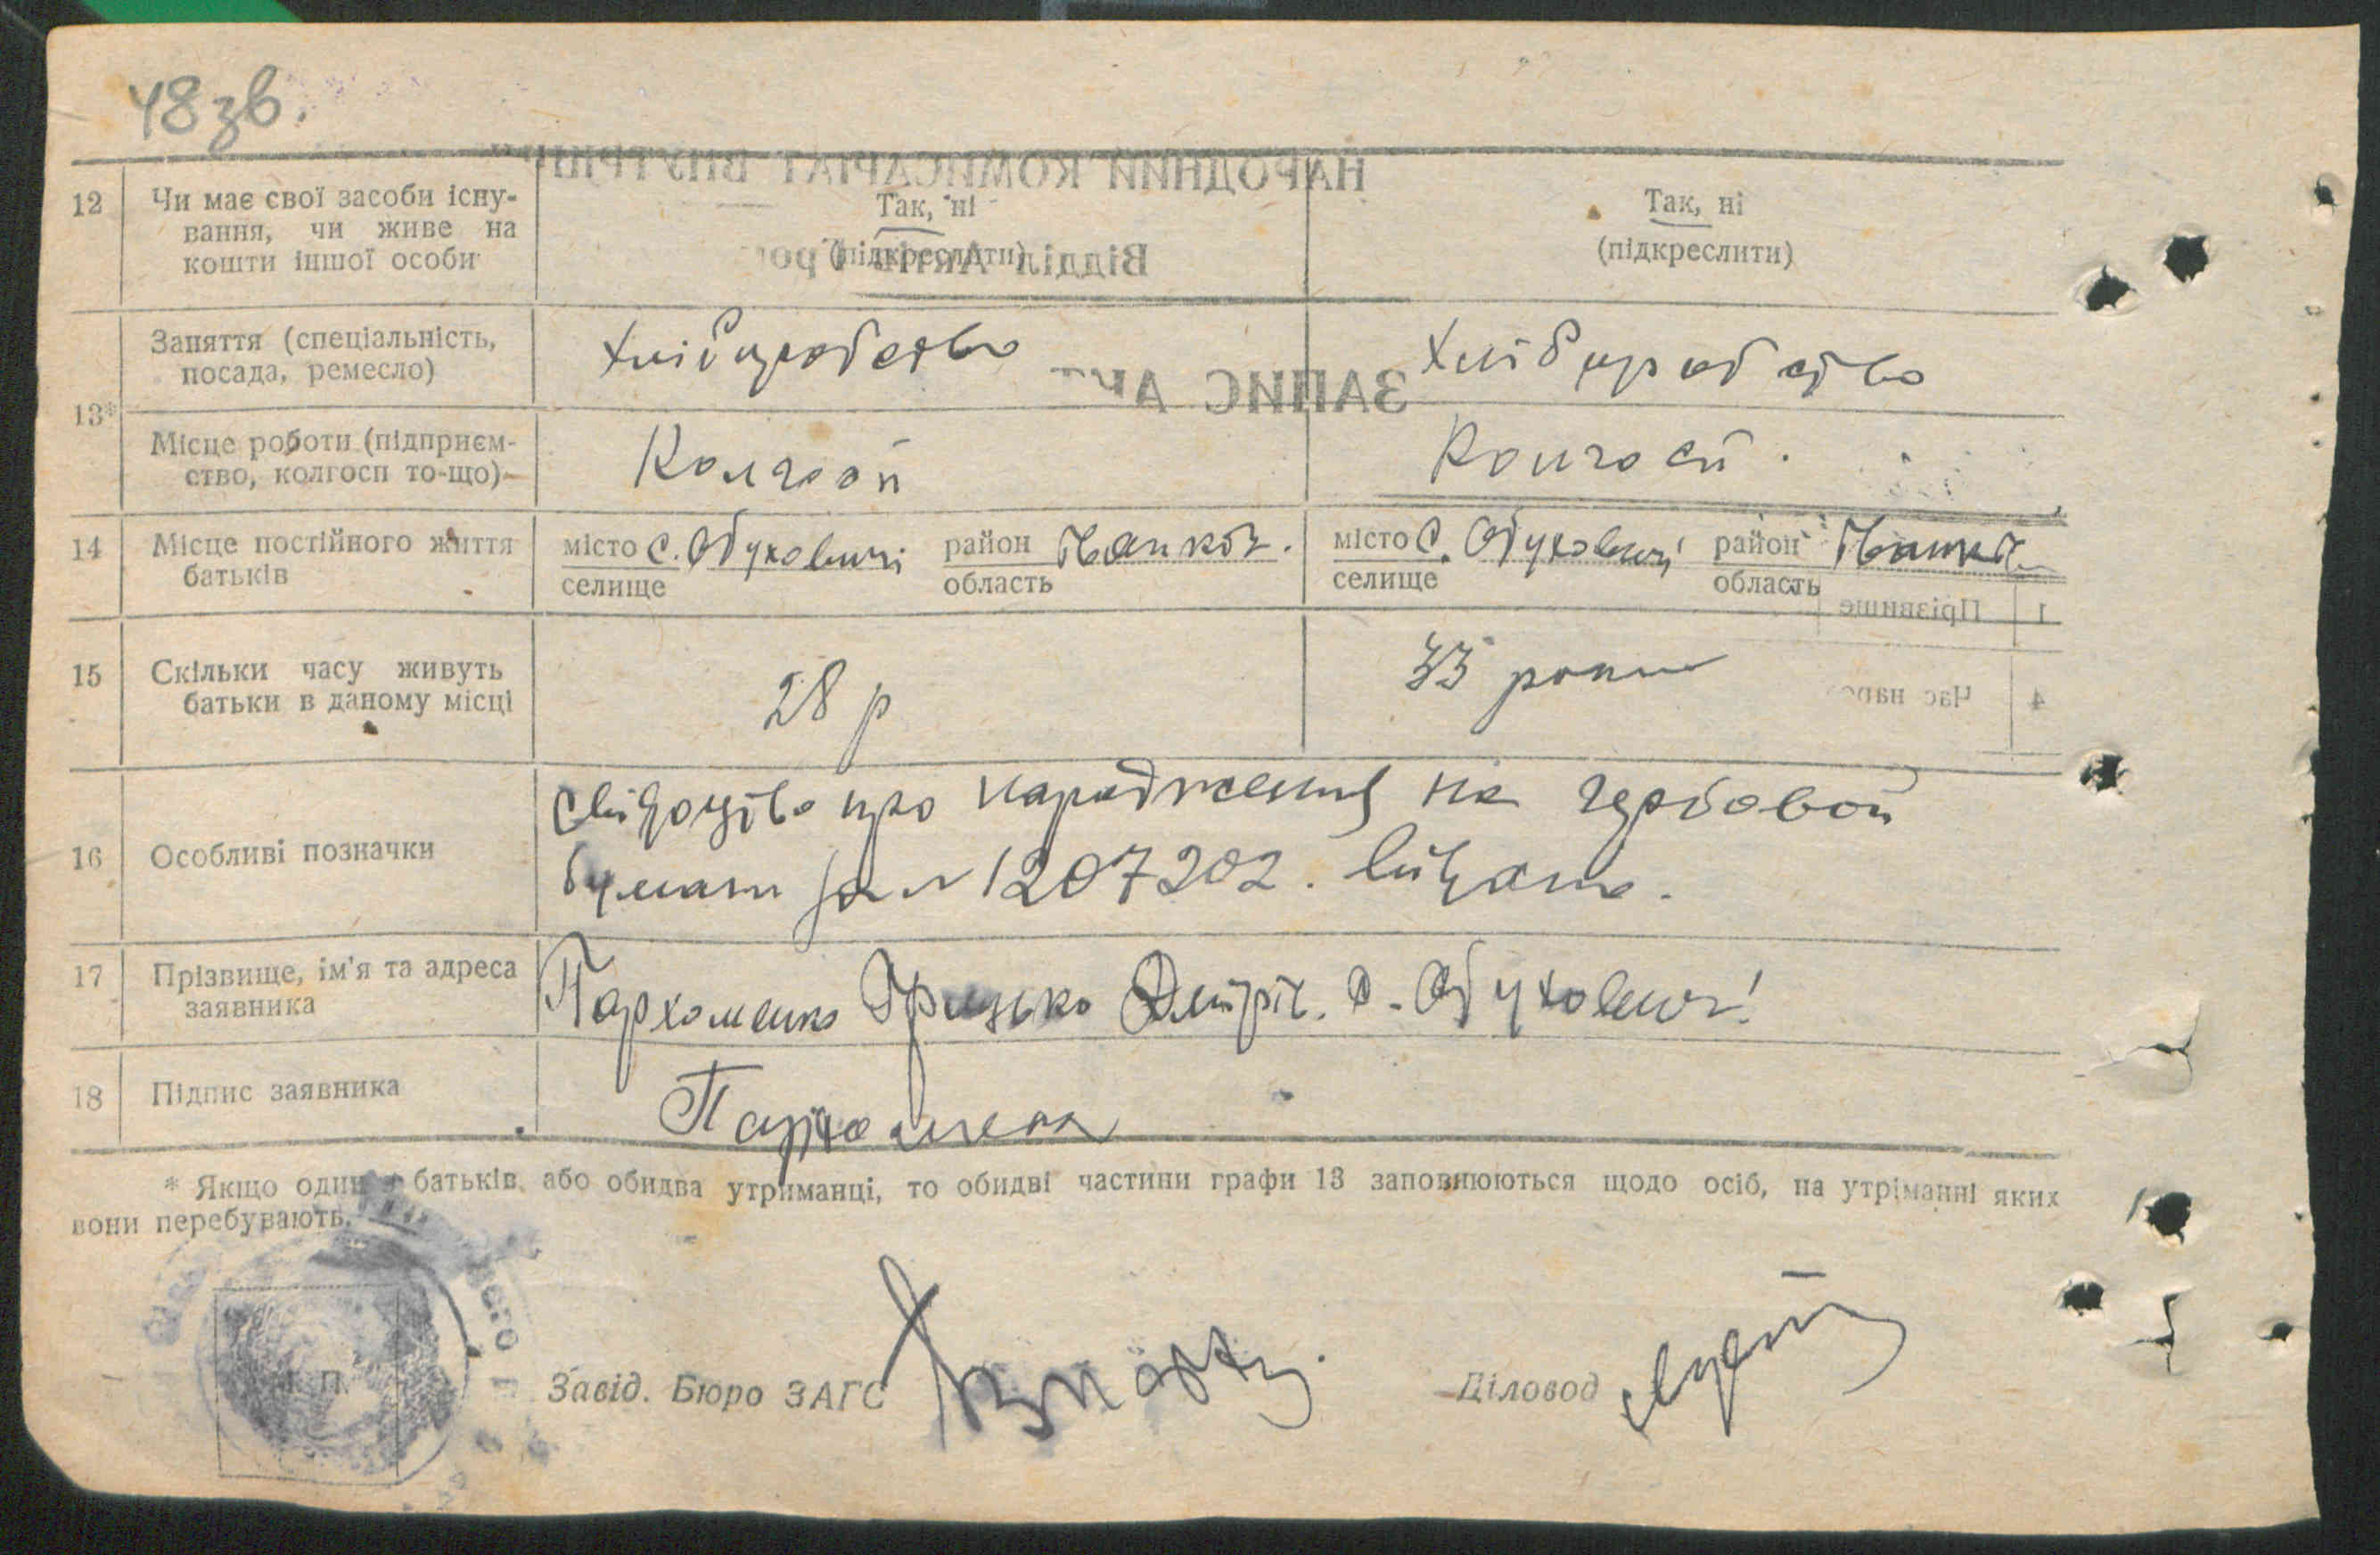 48 зв.
12 Чи має свої засоби існу-
вання, чи живе на
кошти іншої особи
Так, ні
(підкреслити)
Так, ні
(підкреслити)
13*
Заняття (спеціальність,
посада, ремесло)
Хліборобство
Хліборобство
Місце роботи (підприєм-
ство, колгосп то-що)
Колгосп
Колгосп.
14 Місце постійного життя
батьків
місто с. Обуховичі район Іванків.
селище область
місто с. Обуховичі район Іванків
селище область
15 Скільки часу живуть
батьки в даному місці
28 р
33 роки
16 Особливі позначки
Свідоцтво про народження на гербовой
бумати за № 1207202. видано.
17 Прізвище, ім'я та адреса
заявника
Пархоменко Грицько Дмитріч. с. Обуховичі
18 Підпис заявника
Пархоменк
* Якщо один з батьків або обидва утриманці, то обидві частини графи 13 заповнюються щодо осіб, на утріманні яких
вони перебувають.
П.
Завід. Бюро ЗАГС
Діловод
НАРОДНИЙ КОМІСАРІАТ ВНУТРІШН
Відділ Актів Гро
ЗАПИС АК
1 Прізвище
4 Час наро